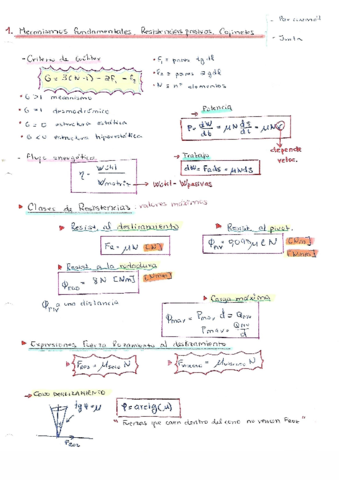 - Por cuerda?
- Junta
1. Mecanismos Fundamentales. Resistencias pasivas. Cojinetes
- Criterio de Grübler
G = 3(N-1) - 2F₁ - F₂
• F₁ = pares 1gdl
• F₂ = pares 2gdl
• N = nº elementos
• G > 1 mecanismo
• G = 1 desmodrómico
• G = 0 estructura estática
• G < 0 estructura hiperestática
→ Potencia
P = dW/dt = μN ds/dt = μN
depende veloc.
- Flujo energético
η = Wútil / Wmotriz
→ Wútil - Wpasivas
→ Trabajo
dWR = FR ds = μN ds
→ Clases de Resistencias. valores máximos
▶ Resist. al deslizamiento
FR = μN [N]
▶ Resist. al pivot.
[Nm]
[Nmm]
▶ Resist. a la rodadura
= δN [Nm]
[Nmm]
a una distancia
→ Carga máxima
→ Expresiones Fuerza Rozamiento al deslizamiento
→ CONO DESLIZAMIENTO
tg φ = μ
φ = arctg(μ)
"Fuerzas que caen dentro del cono no vencen FROZ"